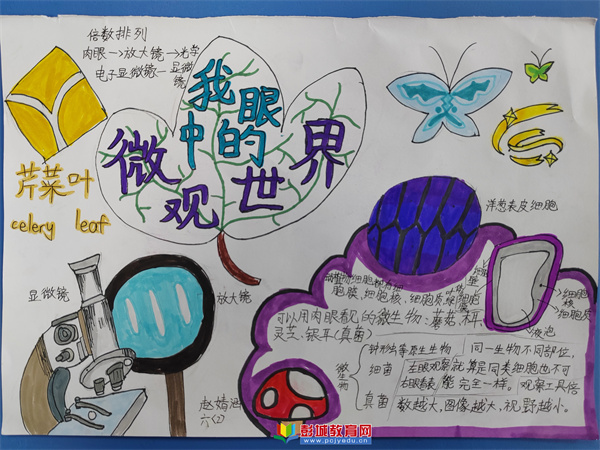 倍数排列
肉眼→放大镜→光学
显微
镜
电子显微镜
我眼
中的
微观世界
芹菜叶
celery leaf
显微镜
放大镜
赵婧涵
六(2)
洋葱表皮细胞
胞膜、细胞核、细胞质、
细胞
核
细胞质
液泡
可以用肉眼看见的微生物:蘑菇、木耳、
灵芝、银耳(真菌)
微生物
钟形虫等原生生物
细菌
真菌
同一生物不同部位,
左眼观察
就算是同类细胞也不可
右眼看
能完全一样。观察工具倍
数越大,图像越大,视野越小。
彭城教育网
www.pcjyedu.cn